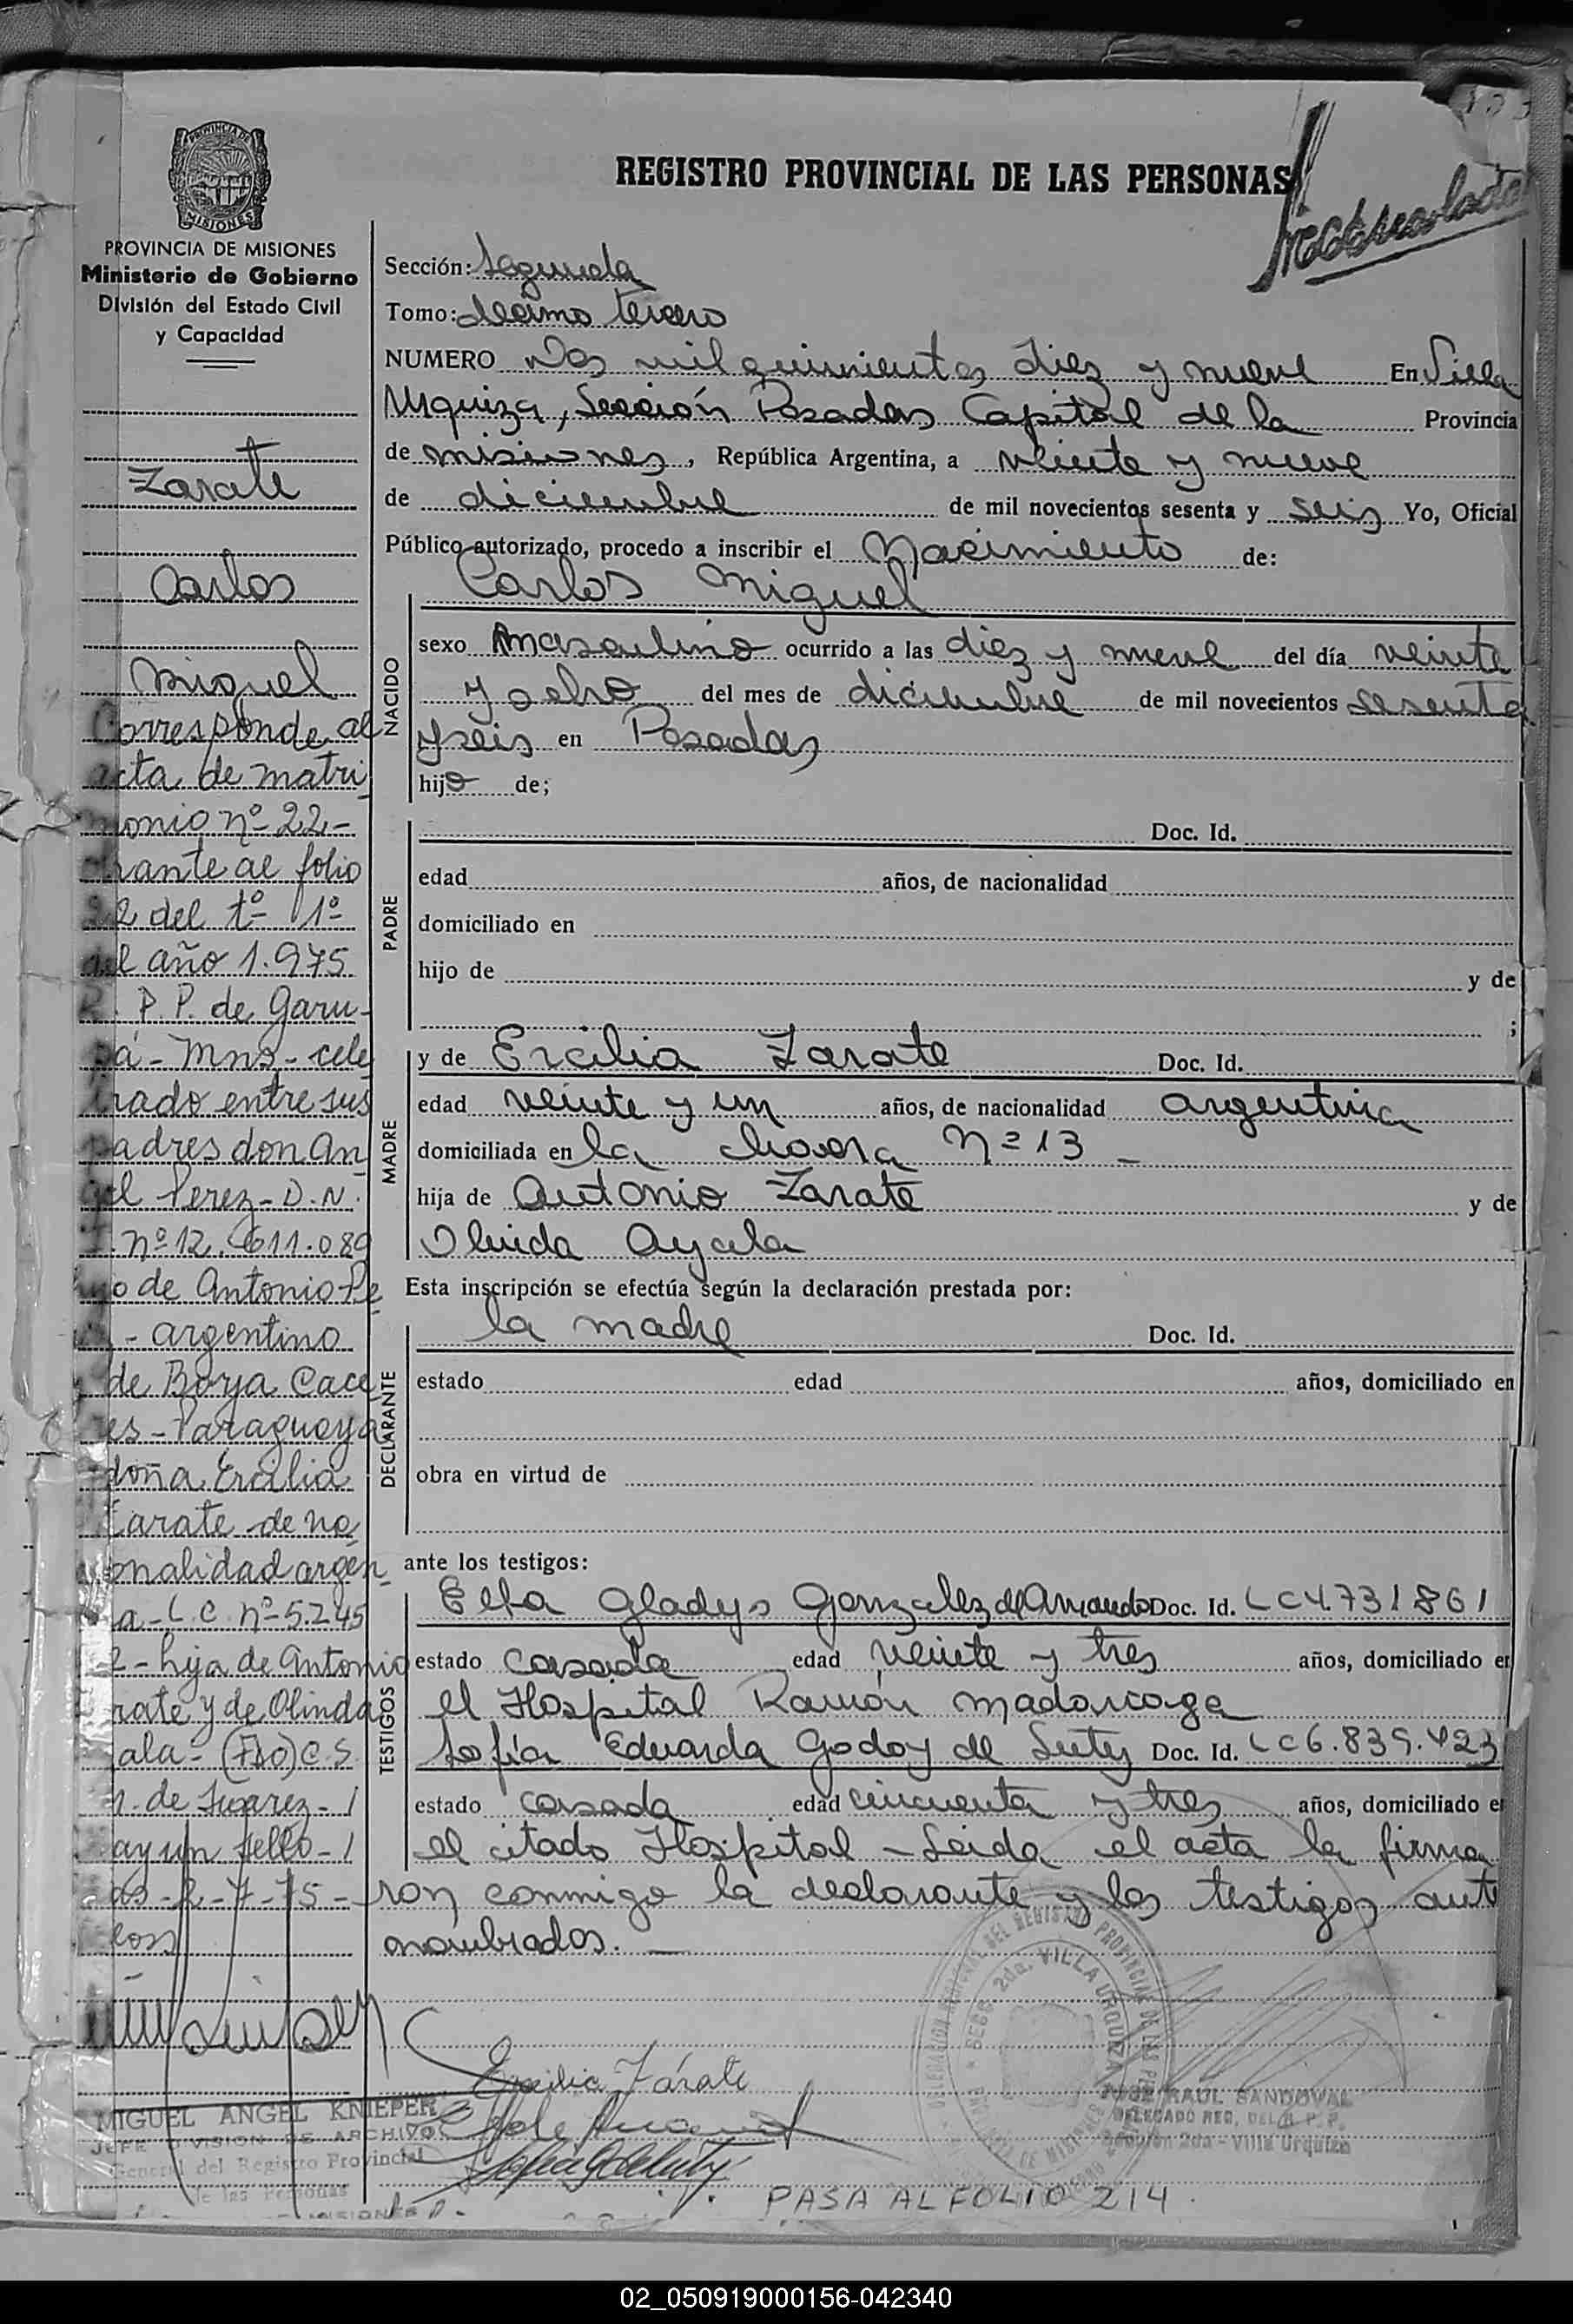 REGISTRO PROVINCIAL DE LAS PERSONAS
PROVINCIA DE
MISIONES
PROVINCIA DE MISIONES
Ministerio de Gobierno
División del Estado Civil
y Capacidad
Zarate
Carlos
Miguel
Corresponde al
acta de matri
monio nº 22-
rante al folio
22 del tº 1º
del año 1.975
R. P. P. de Garu-
pá - Mns - cele
brado entre sus
padres don An
gel Perez - D.N.
I. nº 12.611.089
hijo de Antonio Pe
- argentino
y de Borja Cace
res - Paraguaya
doña Ercilia
Zarate de na
onalidad argen
a - L.C. nº 5.245
2 - hija de Antonio
rate y de Olinda
ala - (FDO) C.S.
de Suarez - /
ay un sello - /
as - 2-7-75 -
MIGUEL ANGEL KNIEPER
JEFE DIVISION DE ARCHIVO
General del Registro Provincial
de las Personas
Sección: Segunda
Tomo: décimo tercero
NUMERO Dos mil quinientos diez y nueve En Villa
Urquiza, Sección Posadas Capital de la Provincia
de misiones, República Argentina, a veinte y nueve
de diciembre de mil novecientos sesenta y seis Yo, Oficial
Público autorizado, procedo a inscribir el Nacimiento de:
NACIDO
Carlos Miguel
sexo masculino ocurrido a las diez y nueve del día veinte
y ocho del mes de diciembre de mil novecientos sesenta
y seis en Posadas
hijo de;
PADRE
Doc. Id.
edad años, de nacionalidad
domiciliado en
hijo de y de
;
MADRE
y de Ercilia Zarate Doc. Id.
edad veinte y un años, de nacionalidad argentina
domiciliada en la chacra Nº 13 -
hija de Antonio Zarate y de
Olinda Ayala
Esta inscripción se efectúa según la declaración prestada por:
DECLARANTE
la madre Doc. Id.
estado edad años, domiciliado en
obra en virtud de
ante los testigos:
TESTIGOS
Elba Gladys Gonzalez de Doc. Id. LC 4.731861
estado casada edad veinte y tres años, domiciliado en
el Hospital Ramón Madariaga
Sofía Eduarda Godoy de Doc. Id. LC 6.839.423
estado casada edad cincuenta y tres años, domiciliado en
el citado Hospital - Leida el acta la firma
ron conmigo la declarante y los testigos ante
nombrados. -
Ercilia Zárate
SECC. 2da. VILLA URQUIZA
RAUL SANDOVAL
DELEGADO REG. DEL R. P. P.
Sección 2da - Villa Urquiza
PASA AL FOLIO 214.
02_050919000156-042340